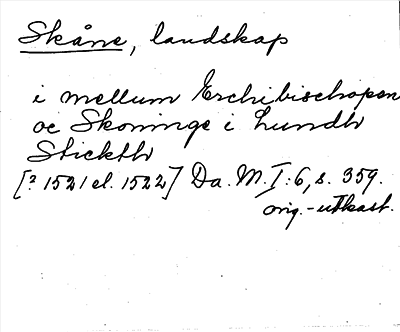 Skåne, landskap
i mellum Erchibischopen
oc Skoninge i Lundh
Stickth
[? 1521 el. 1522] Da. M. I: 6, s. 359.
orig.-utkast.